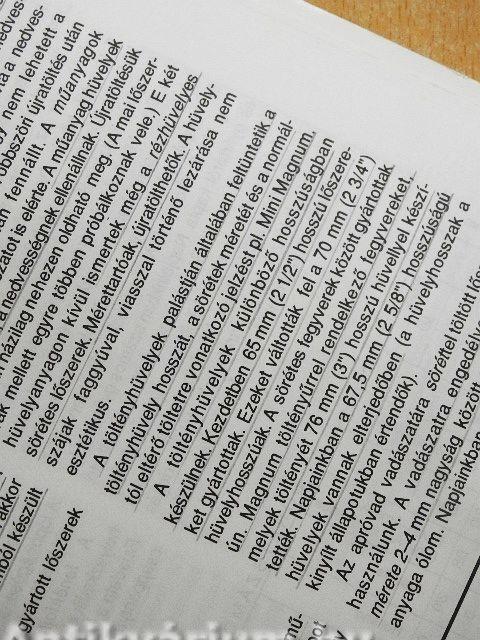 nedves-
ta a nedves-
gy nem lehetett a
többszöri újratöltés után
fennállt. A műanyagok
is elérte. A műanyag hüvelyek
a nedvességnek ellenállnak. Újratöltésük
házilag nehezen oldható meg. (A mai lőszer-
mellett egyre többen próbálkoznak vele.) E két
hüvelyanyagon kívül ismertek még a rézhüvelyes
sörétes lőszerek. Mérettartóak, újratölthetők. A hüvely-
szájak faggyúval, viasszal történő lezárása nem
esztétikus.
A töltényhüvelyek palástján általában feltüntetik a
töltényhüvely hosszát, a sörétek méretét és a normál-
tól eltérő töltetre vonatkozó jelzést pl. Mini Magnum.
A töltényhüvelyek különböző hosszúságban
készülnek. Kezdetben 65 mm (2 1/2") hosszú lőszere-
ket gyártottak. Ezeket váltották fel a 70 mm (2 3/4")
hüvelyhosszúak. A sörétes fegyverek között gyártottak
ún. Magnum töltényűrrel rendelkező fegyvereket,
melyek töltényét 76 mm (3") hosszú hüvellyel készí-
tették. Napjainkban a 67,5 mm (2 5/8") hosszúságú
hüvelyek vannak elterjedőben (a hüvelyhosszak a
kinyílt állapotukban értendők).
Az apróvad vadászatára söréttel töltött
használunk. A vadászatra
mérete 2-4 mm nagyság között
anyaga ólom. Napjainkban
akkor
készült
gyártott lőszerek